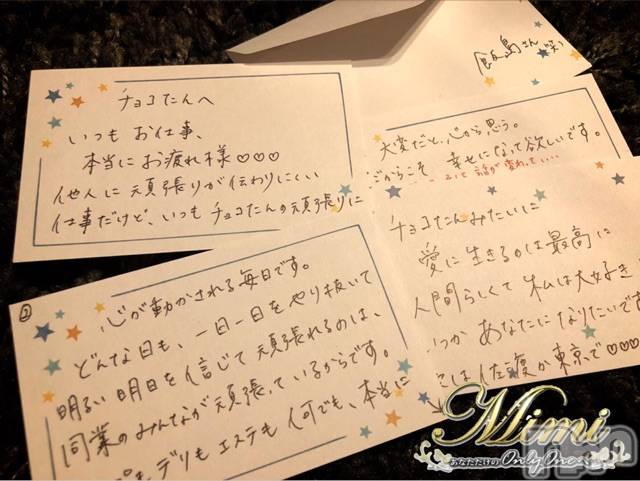 チョコたんへ
いつも お仕事、
本当に お疲れ様♡♡♡
他人に頑張りが伝わりにくい
仕事だけど、いつも チョコたんの頑張りに
②
心が動かされる毎日です。
どんな日も、一日一日をやり抜いて
明るい明日を信じて頑張れるのは、
同業のみんなが頑張っているからです。
デリも エステも 何でも、本当に
大変だと、心から思う。
だからこそ 幸せになって欲しいです。
チョコたんみたいに
愛に生きるのは最高に
人間らしくて 私は大好き
いつか あなたになりたいです
佐渡か東京で♡♡♡
飯島さん
Mimi
あなただけのOnlyOne